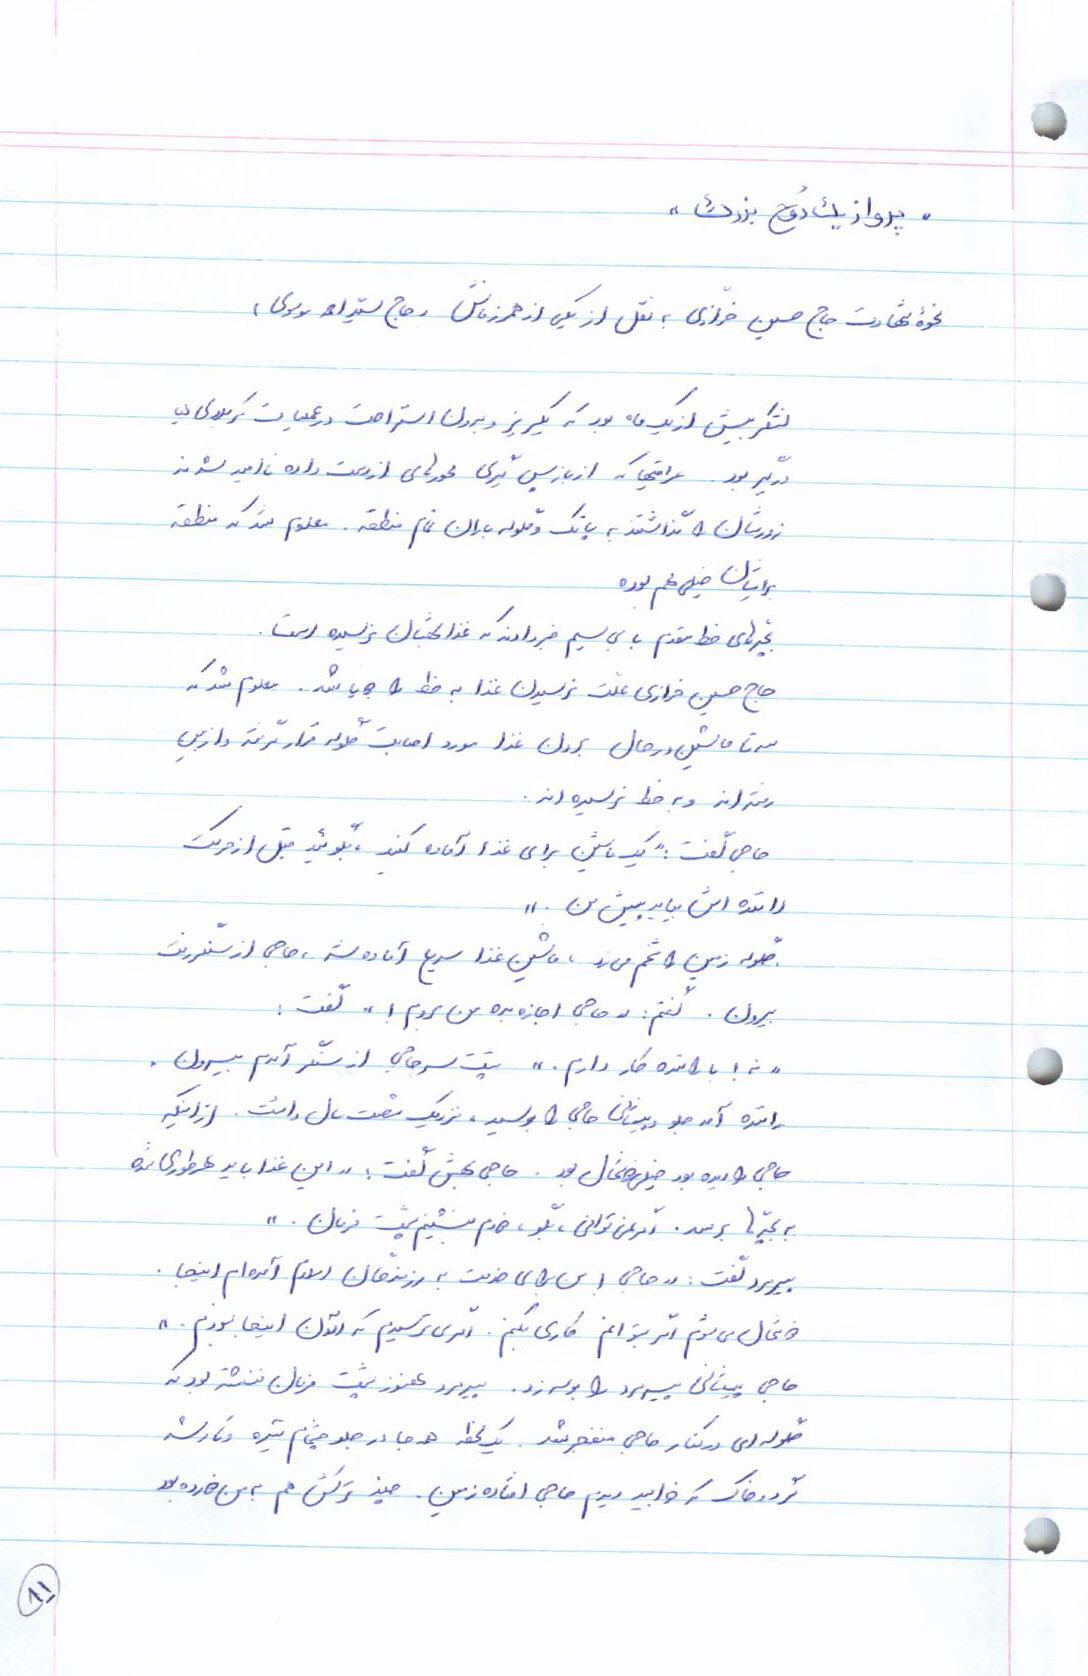 « پرواز یک روح بزرگ »
نحوهٔ شهادت حاج حسین خرازی به نقل از یکی از همرزمانش «حاج سید احمد موسوی»
لشگر بیش از یک ماه بود که یکریز و بدون استراحت در عملیات کربلای
درگیر بود. عراقیها که از بازپس گیری محورهای از دست داده ناامید شدند
زورشان را گذاشتند به پاتک و گلوله باران تمام منطقه. معلوم شد که منطقه
برایشان خیلی مهم بوده
بچه‌های خط مقدم با بی سیم خبر دادند که غذا بهشان نرسیده است.
حاج حسین خرازی علت نرسیدن غذا به خط را جویا شد. معلوم شد که
سه تا ماشین در حال بردن غذا مورد اصابت گلوله قرار گرفته و از بین
رفته‌اند و به خط نرسیده اند.
حاجی گفت: «یک ماشین برای غذا آماده کنید، بگوئید قبل از حرکت
راننده اش بیاید پیش من.»
گلوله زمین را شخم می‌زد، ماشین غذا سریع آماده شد، حاجی از سنگر رفت
بیرون. گفتم: «حاجی اجازه بده من بروم!» گفت:
«نه! با راننده کار دارم.» پشت سر حاجی از سنگر آمدم بیرون.
راننده آمد جلو و پیشانی حاجی را بوسید، نزدیک شصت سال داشت. از اینکه
حاجی را دیده بود خیلی خوشحال بود. حاجی بهش گفت: «این غذا باید هر طوری شده
به بچه‌ها برسد. اگر نمی‌توانی، بگو، خودم بنشینم پشت فرمان.»
پیرمرد گفت: «حاجی! من برای خدمت به رزمندگان اسلام آمده‌ام اینجا.
خوشحال می‌شوم اگر بتوانم کاری بکنم. اگر می‌ترسیدم که الآن اینجا نبودم.»
حاجی پیشانی پیرمرد را بوسه زد. پیرمرد هنوز پشت فرمان ننشسته بود که
گلوله‌ای در کنار حاجی منفجر شد. یک لحظه همه جا در جلو چشمانم تیره و تار شد
گرد و خاک که خوابید دیدم حاجی افتاده زمین. چند ترکش هم به من خورده بود
۸۱